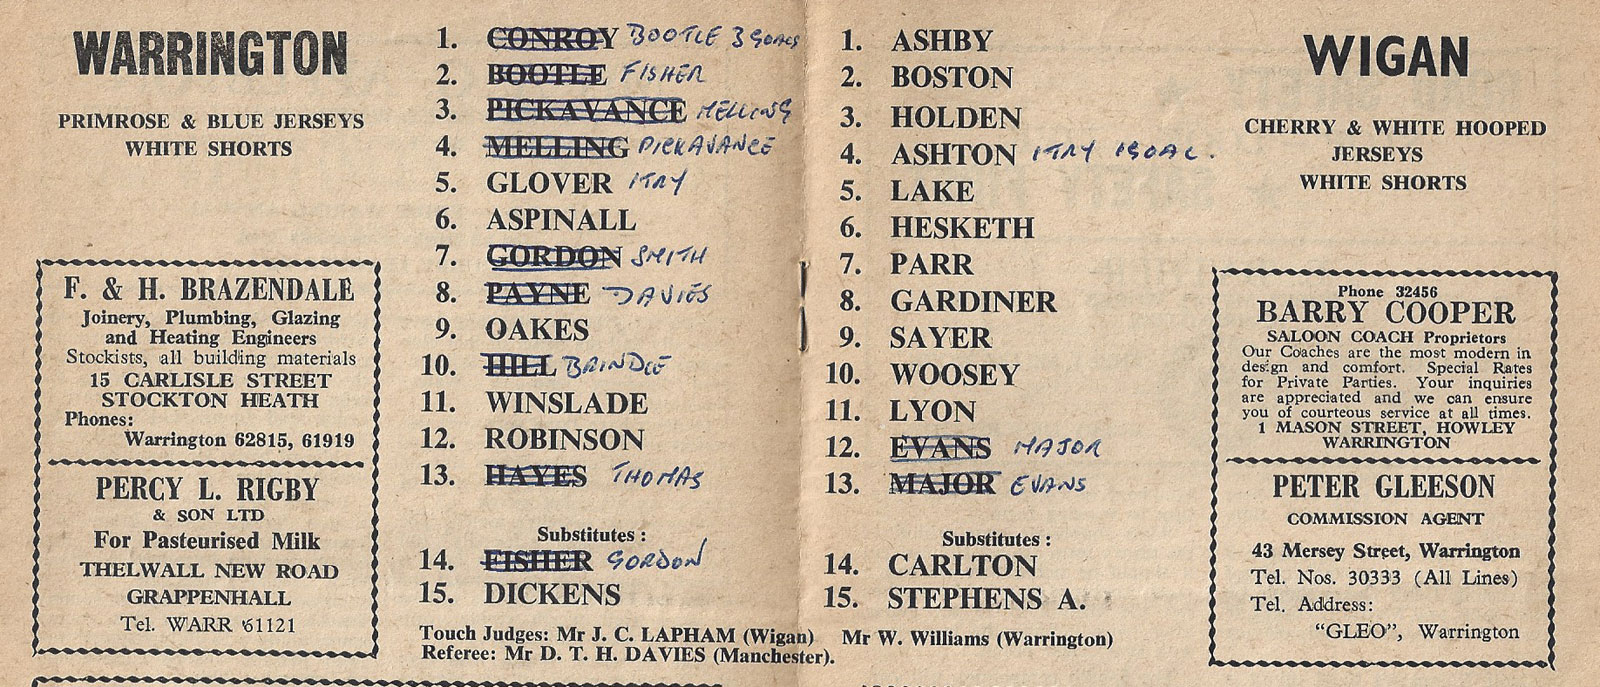 WARRINGTON
PRIMROSE & BLUE JERSEYS
WHITE SHORTS
F. & H. BRAZENDALE
Joinery, Plumbing, Glazing
and Heating Engineers
Stockists, all building materials
15 CARLISLE STREET
STOCKTON HEATH
Phones:
Warrington 62815, 61919
PERCY L. RIGBY
& SON LTD
For Pasteurised Milk
THELWALL NEW ROAD
GRAPPENHALL
Tel. WARR 61121
1. CONROY BOOTLE 3 GOALS
2. BOOTLE FISHER
3. PICKAVANCE MELLING
4. MELLING PICKAVANCE
5. GLOVER 1TRY
6. ASPINALL
7. GORDON SMITH
8. PAYNE DAVIES
9. OAKES
10. HILL BRINDLE
11. WINSLADE
12. ROBINSON
13. HAYES THOMAS
Substitutes :
14. FISHER GORDON
15. DICKENS
1. ASHBY
2. BOSTON
3. HOLDEN
4. ASHTON 1TRY 1GOAL.
5. LAKE
6. HESKETH
7. PARR
8. GARDINER
9. SAYER
10. WOOSEY
11. LYON
12. EVANS MAJOR
13. MAJOR EVANS
Substitutes :
14. CARLTON
15. STEPHENS A.
Touch Judges: Mr J. C. LAPHAM (Wigan) Mr W. Williams (Warrington)
Referee: Mr D. T. H. DAVIES (Manchester).
WIGAN
CHERRY & WHITE HOOPED
JERSEYS
WHITE SHORTS
Phone 32456
BARRY COOPER
SALOON COACH Proprietors
Our Coaches are the most modern in
design and comfort. Special Rates
for Private Parties. Your inquiries
are appreciated and we can ensure
you of courteous service at all times.
1 MASON STREET, HOWLEY
WARRINGTON
PETER GLEESON
COMMISSION AGENT
43 Mersey Street, Warrington
Tel. Nos. 30333 (All Lines)
Tel. Address:
"GLEO", Warrington